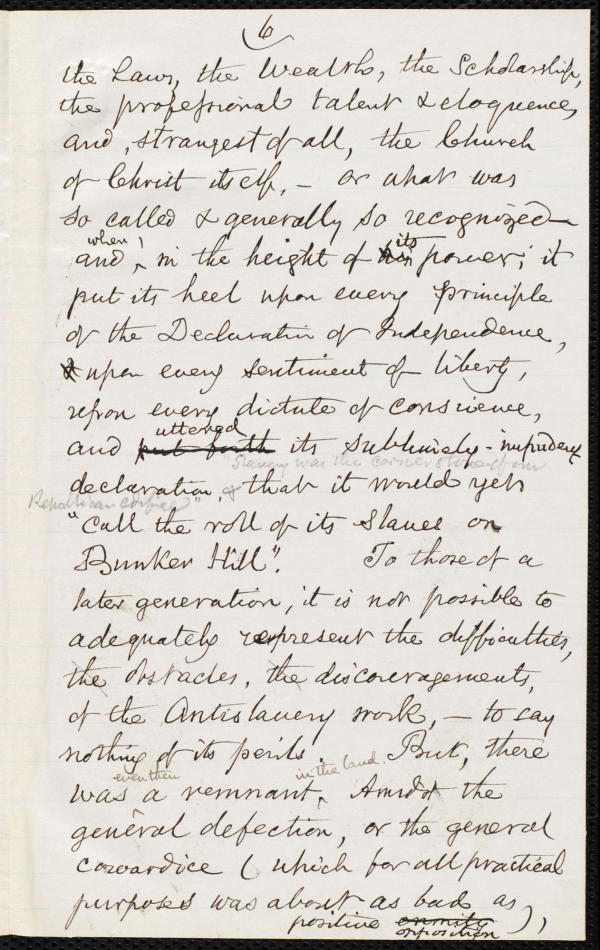 6
the Laws, the Wealth, the Scholarship,
the professional talent & eloquence,
and, strangest of all, the Church
of Christ itself, – or what was
so called & generally so recognized –
when its
and, in the height of his power, it
put its heel upon every principle
of the Declaration of Independence,
& upon every sentiment of liberty,
upon every dictate of conscience,
uttered
and put forth its sublimely-impudent
Slavery was the corner stone of our
declaration, & that it would yet
Republican edifice"
"call the roll of its Slaves on
Bunker Hill". To those of a
later generation, it is not possible to
adequately represent the difficulties,
the obstacles, the discouragements,
of the Antislavery work, – to say
nothing of its perils. But, there
even then in the land.
was a remnant, Amidst the
general defection, or the general
cowardice (which for all practical
purposes was about as bad as),
positive enmity
opposition